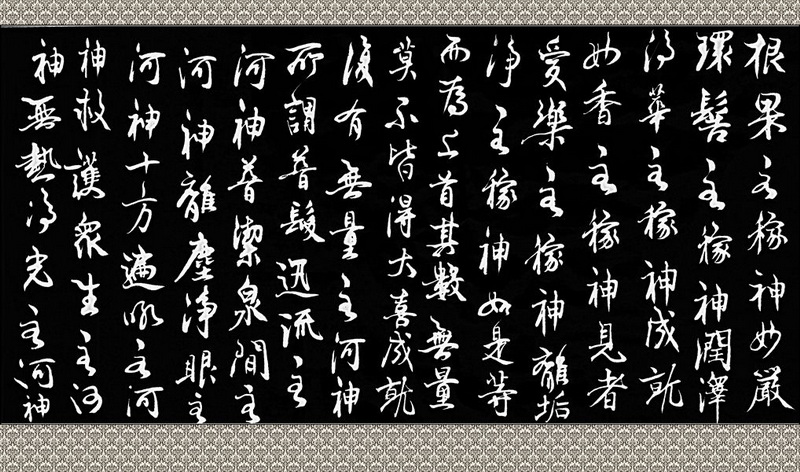 根果主稼神妙嚴
環髻主稼神潤澤
淨華主稼神成就
妙香主稼神見者
愛樂主稼神離垢
淨主稼神如是等
而為上首其數無量
莫不皆得大喜成就
復有無量主河神
所謂普發迅流主
河神普潔泉澗主
河神離塵淨眼主
河神十方遍吼主河
神救護眾生主河
神無熱淨光主河神